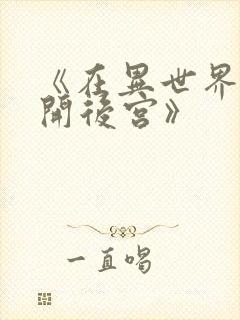 《在異世界
開後宮》
一直唱